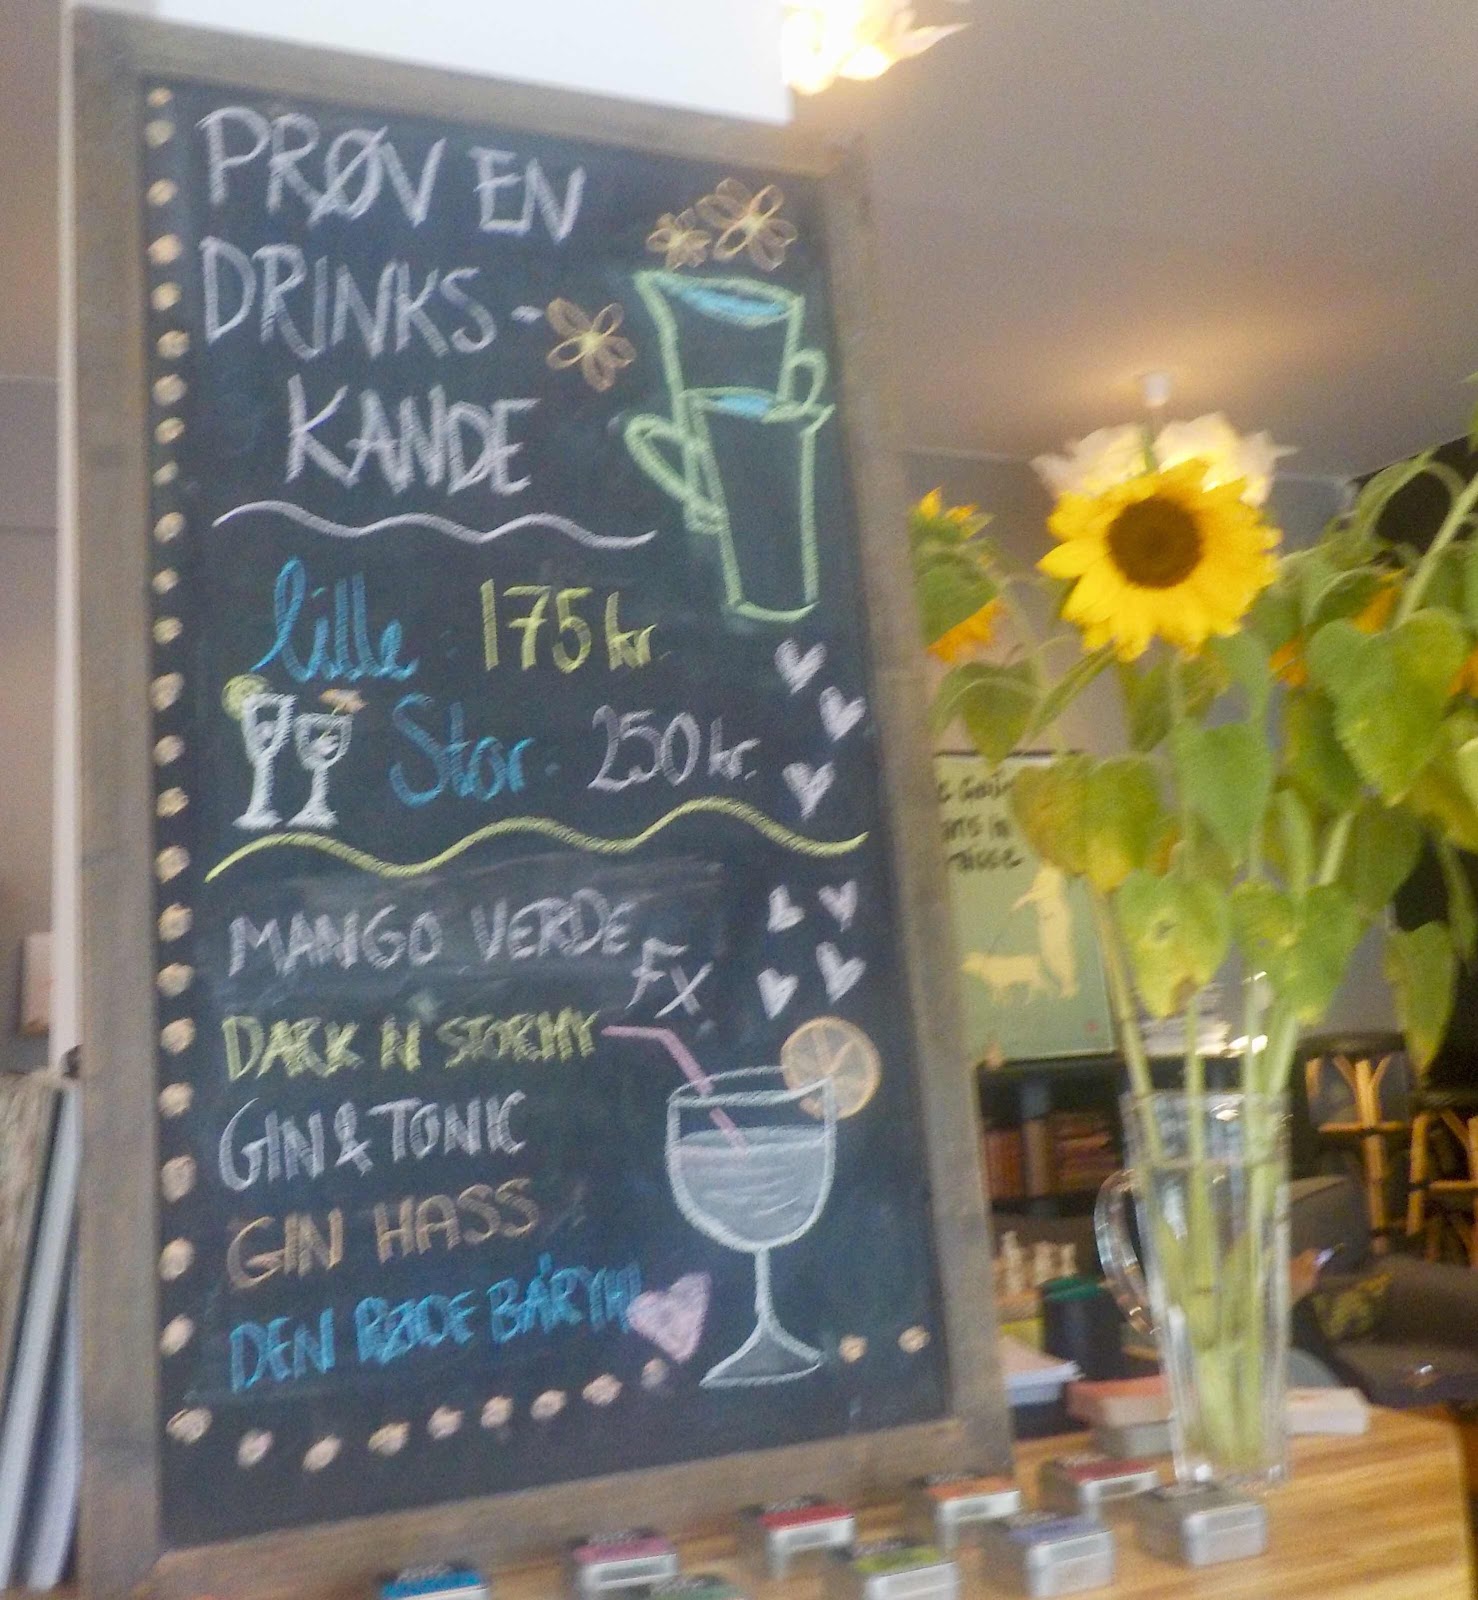 PRØV EN
DRINKS-
KANDE
lille 175 kr.
Stor 250 kr.
MANGO VERDE
FX
DARK N STORMY
GIN & TONIC
GIN HASS
DEN RØDE